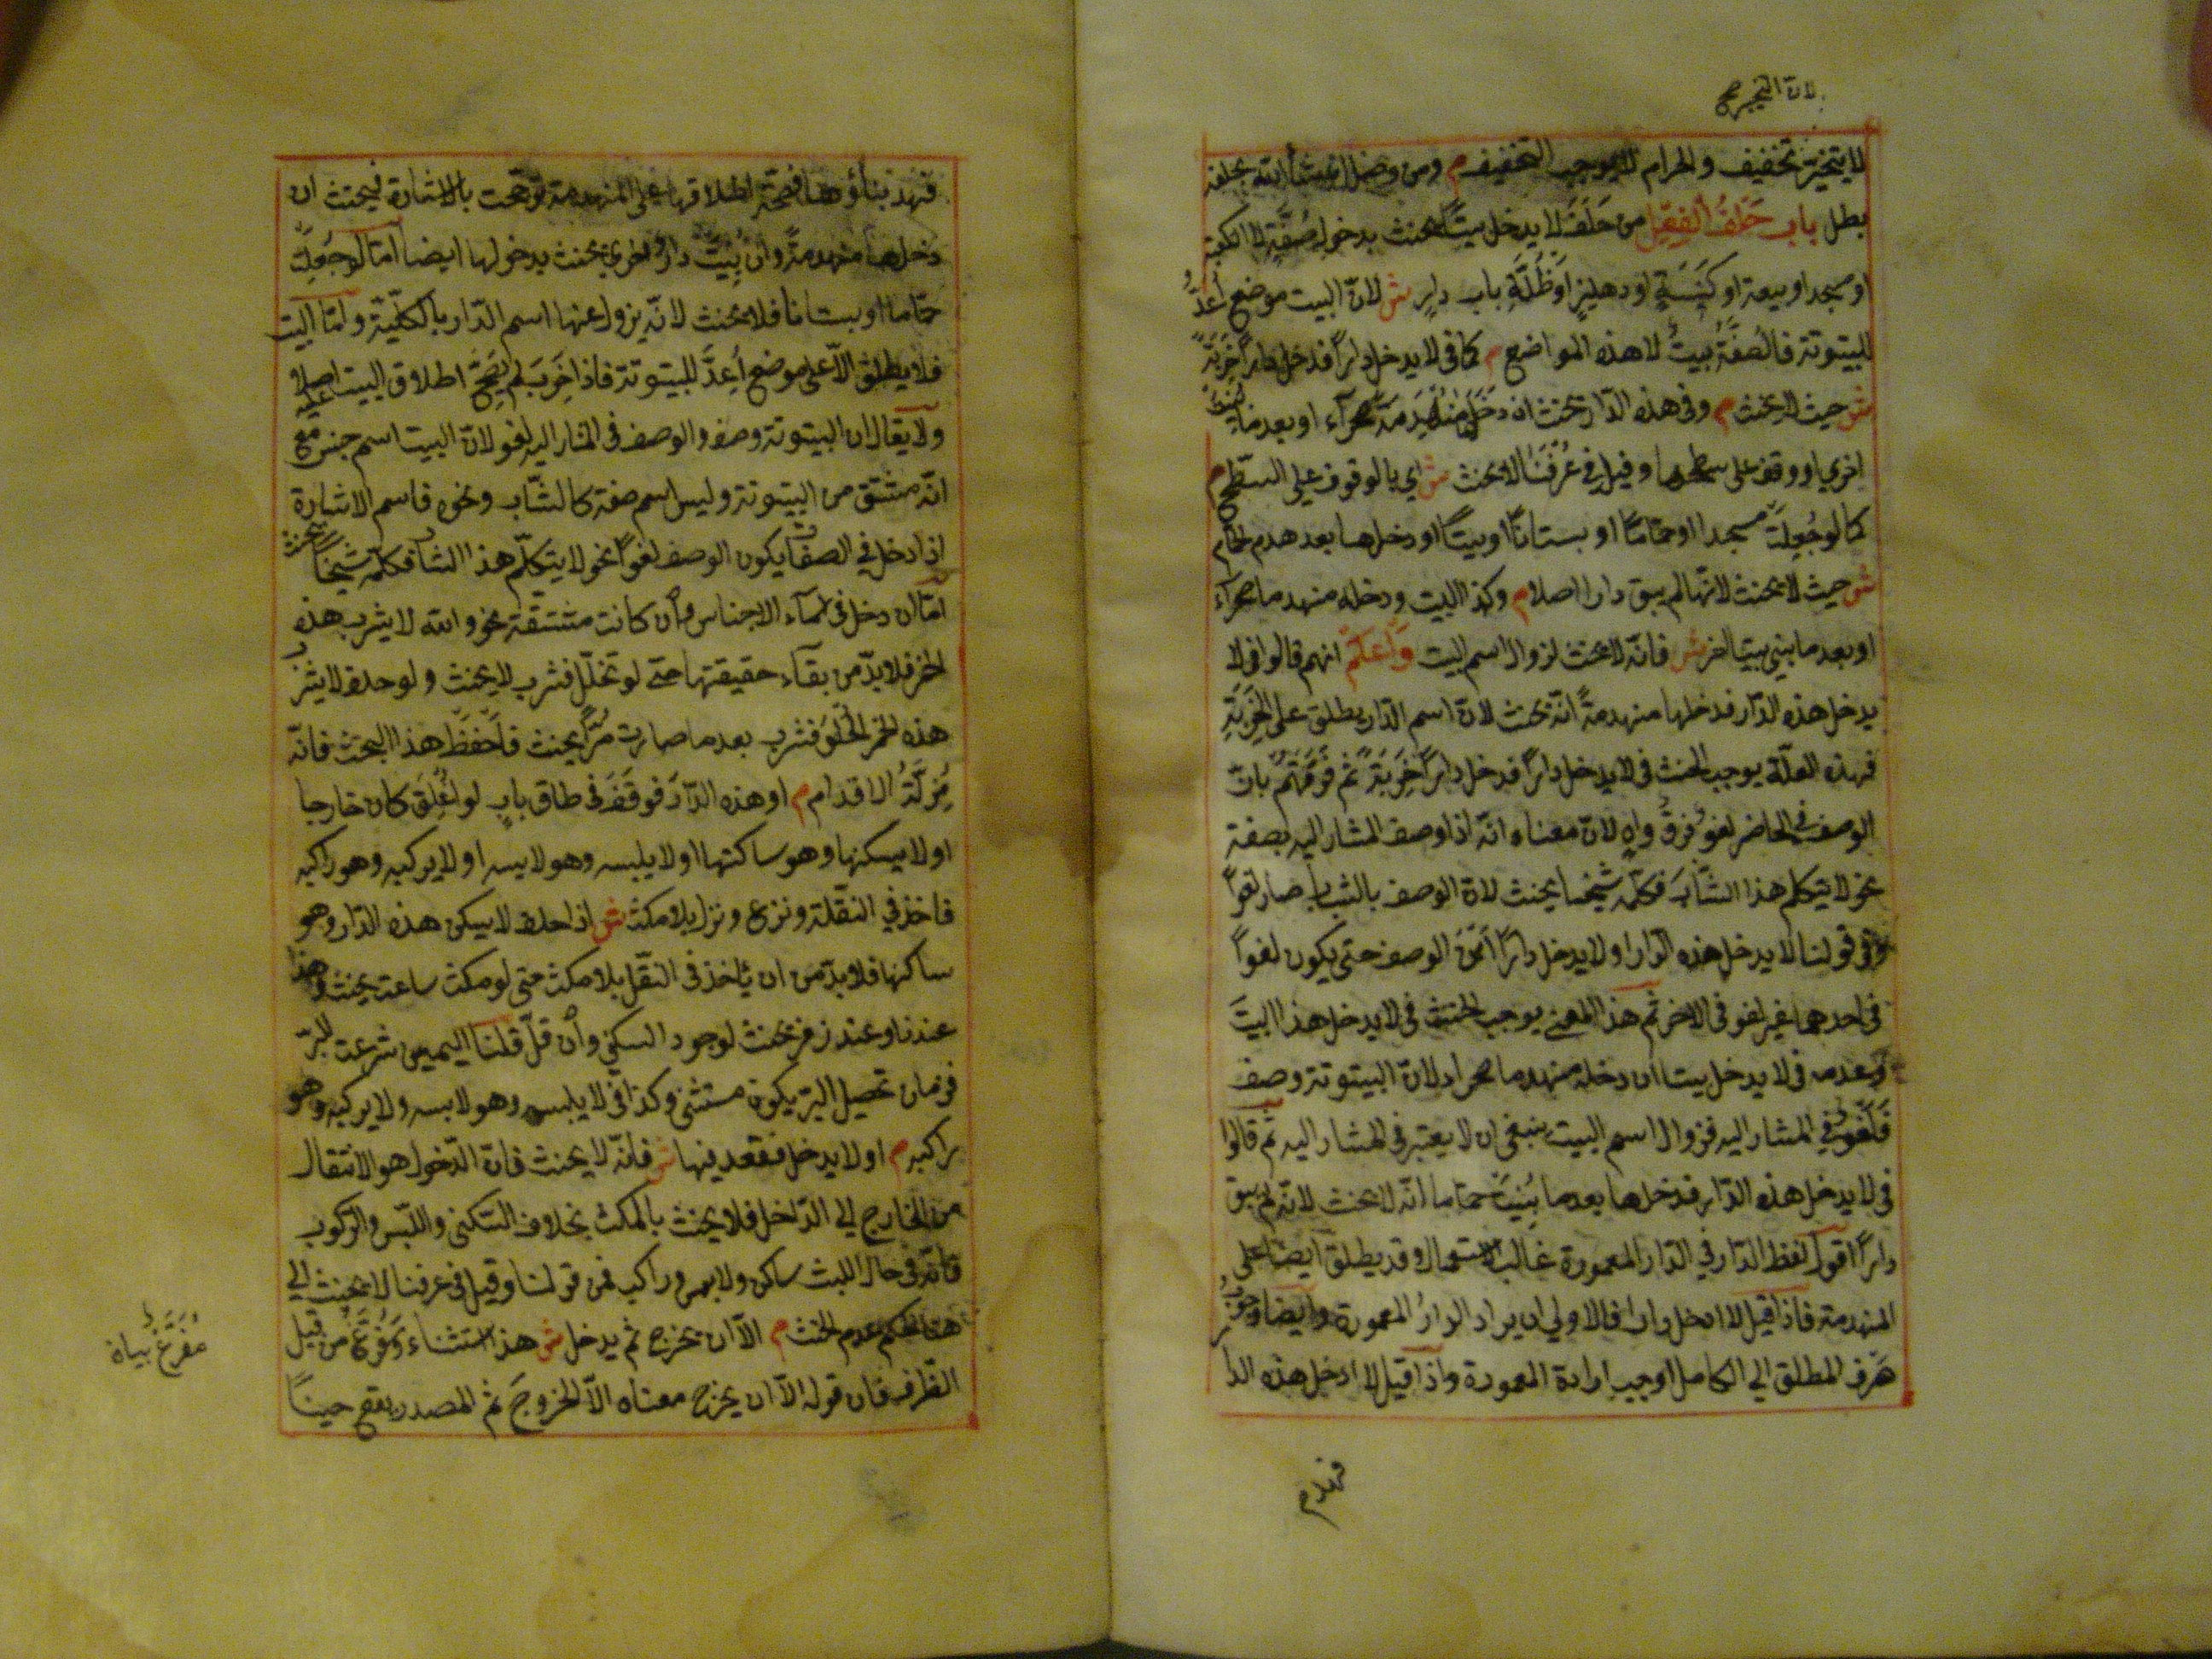 لان التخيير صح
لا يتخير تخفيف والحرام لا يوجب التخفيف م ومن وصل ان شاء الله بحلفه
بطل باب حلف الفعل من حلف لا يدخل بيتا يحنث بدخول صفة لا الكعبة
او مسجد او بيعة او كنيسة او دهليز او ظلة باب دار ش لان البيت موضع اعد
للبيتوتة فالصفة بيت لا هذه المواضع م كما في لا يدخل دارا فدخل دارا خربة
ش حيث لا يحنث م وفي هذه الدار يحنث ان دخل منهدمة صحراء او بعد ما بنيت
اخرى او وقف على سطحها وقيل في عرفنا لا يحنث ش اي بالوقوف على السطح م
كما لو جعلت مسجدا او حماما او بستانا او بيتا او دخلها بعد هدم الحمام
ش حيث لا يحنث لانها لم يبق دارا اصلا م وكذا البيت ودخله منهدما صحراء
او بعد ما بني بيتا اخر ش فانه لا يحنث لزوال اسم البيت واعلم انهم قالوا في لا
يدخل هذه الدار فدخلها منهدمة انه يحنث لان اسم الدار يطلق على الخربة
فهذه العلة يوجب الحنث في لا يدخل دارا فدخل دارا خربة ثم فرقتم بان
الوصف في الحاضر لغو فرق واه لان معناه انه اذا وصف المشار اليه بصفة
نحو لا يتكلم هذا الشاب فكلمه شيخا يحنث لان الوصف بالشباب صار لغوا
وفي قولنا لا يدخل هذه الدار او لا يدخل دارا اين الوصف حتى يكون لغوا
في احدهما غير لغو في الاخر ثم هذا المعنى يوجب الحنث في لا يدخل هذا البيت
وعدمه في لا يدخل بيتا ان دخله منهدما صحراء لان البيتوتة وصف
فلغو في المشار اليه فزوال اسم البيت ينبغي ان لا يعتبر في المشار اليه ثم قالوا
في لا يدخل هذه الدار فدخلها بعد ما بنيت حماما انه لا يحنث لانه لم يبق
دارا اقول لفظ الدار في الدار المعمورة غالب الاستعمال وقد يطلق ايضا على
المنهدمة فاذا قيل لا ادخل دارا فالاولى ان يراد الدار المعمورة وايضا وجوب
صرف المطلق الى الكامل اوجب ارادة المعمورة واذا قيل لا ادخل هذه الدار
فهدم
فهدم بناؤها فصحة اطلاقها على المنهدمة ترجحت بالاشارة فيحنث ان
دخلها منهدمة وان بنيت دارا اخرى يحنث بدخولها ايضا اما لو جعلت
حماما او بستانا فلا يحنث لانه يزول عنها اسم الدار بالكلية واما البيت
فلا يطلق الا على موضع اعد للبيتوتة فاذا خرب لم يصح اطلاق البيت عليه اصلا
ولا يقال ان البيتوتة وصف والوصف في المشار اليه لغو لان البيت اسم جنس مع
انه مشتق من البيتوتة وليس اسم صفة كالشاب ونحوه فاسم الاشارة
اذا دخل في الصفات يكون الوصف لغوا نحو لا يتكلم هذا الشاب فكلمه شيخا يحنث
اما ان دخل في اسماء الاجناس وان كانت مشتقة نحو والله لا يشرب هذه
الخمر فلا بد من بقاء حقيقتها حتى لو تخلل فشرب لا يحنث ولو حلف لا يشرب
هذه الخمر الحلو فشرب بعد ما صارت مرا يحنث فاحفظ هذا البحث فانه
مزلة الاقدام م او هذه الدار فوقف في طاق باب لو اغلق كان خارجا
او لا يسكنها وهو ساكنها او لا يلبسه وهو لابسه او لا يركبه وهو راكبه
فاخذ في النقلة ونزع ونزل بلا مكث ش اذا حلف لا يسكن هذه الدار وهو
ساكنها فلا بد من ان ياخذ في النقل بلا مكث حتى لو مكث ساعة يحنث وهذا
عندنا وعند زفر يحنث لوجود السكنى وان قل قلنا اليمين شرعت للبر
فزمان تحصيل البر يكون مستثنى وكذا في لا يلبسه وهو لابسه ولا يركبه وهو
راكبه م او لا يدخل فقعد فيها ش فانه لا يحنث فان الدخول هو الانتقال
من الخارج الى الداخل فلا يحنث بالمكث بخلاف السكنى واللبس والركوب
فانه في حال اللبث ساكن ولابس وراكب فمن قولنا وقيل في عرفنا لا يحنث الى
هنا الحكم عدم الحنث م الا ان يخرج ثم يدخل ش هذا استثناء مفرغ من قبيل
الظرف فان قوله الا ان يخرج معناه الا الخروج ثم المصدر يقع حينا
مفرغ بيانه